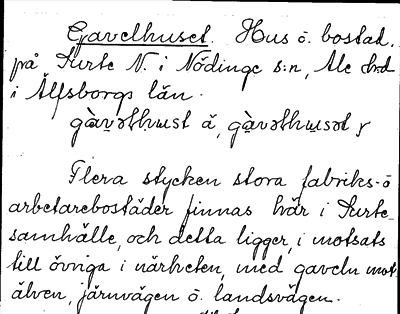 Gavelhuset. Hus o. bostad.
på Surte N. i Nödinge s:n, Ale hd
i Älfsborgs län.
Flera stycken stora fabriks- o
arbetarebostäder finnas här i Surte-
samhälle, och detta ligger, i motsats
till övriga i närheten, med gaveln mot
älven, järnvägen o. landsvägen.